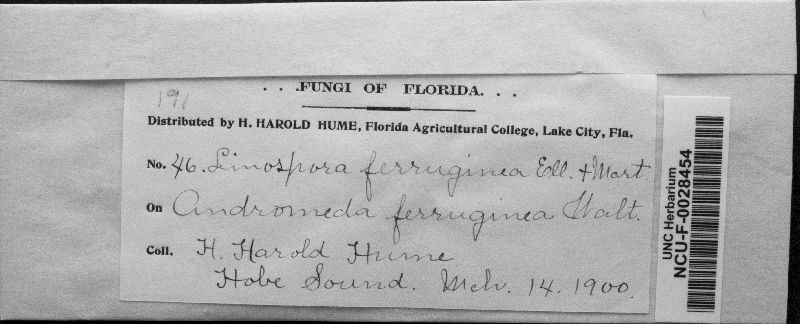 . . .FUNGI OF FLORIDA. . .
191
Distributed by H. HAROLD HUME, Florida Agricultural College, Lake City, Fla.
No. 46. Linospora ferruginea Ell. + Mart.
On Andromeda ferruginea Walt.
Coll. H. Harold Hume
Hobe Sound. Mch. 14. 1900.
UNC Herbarium
NCU-F-0028454